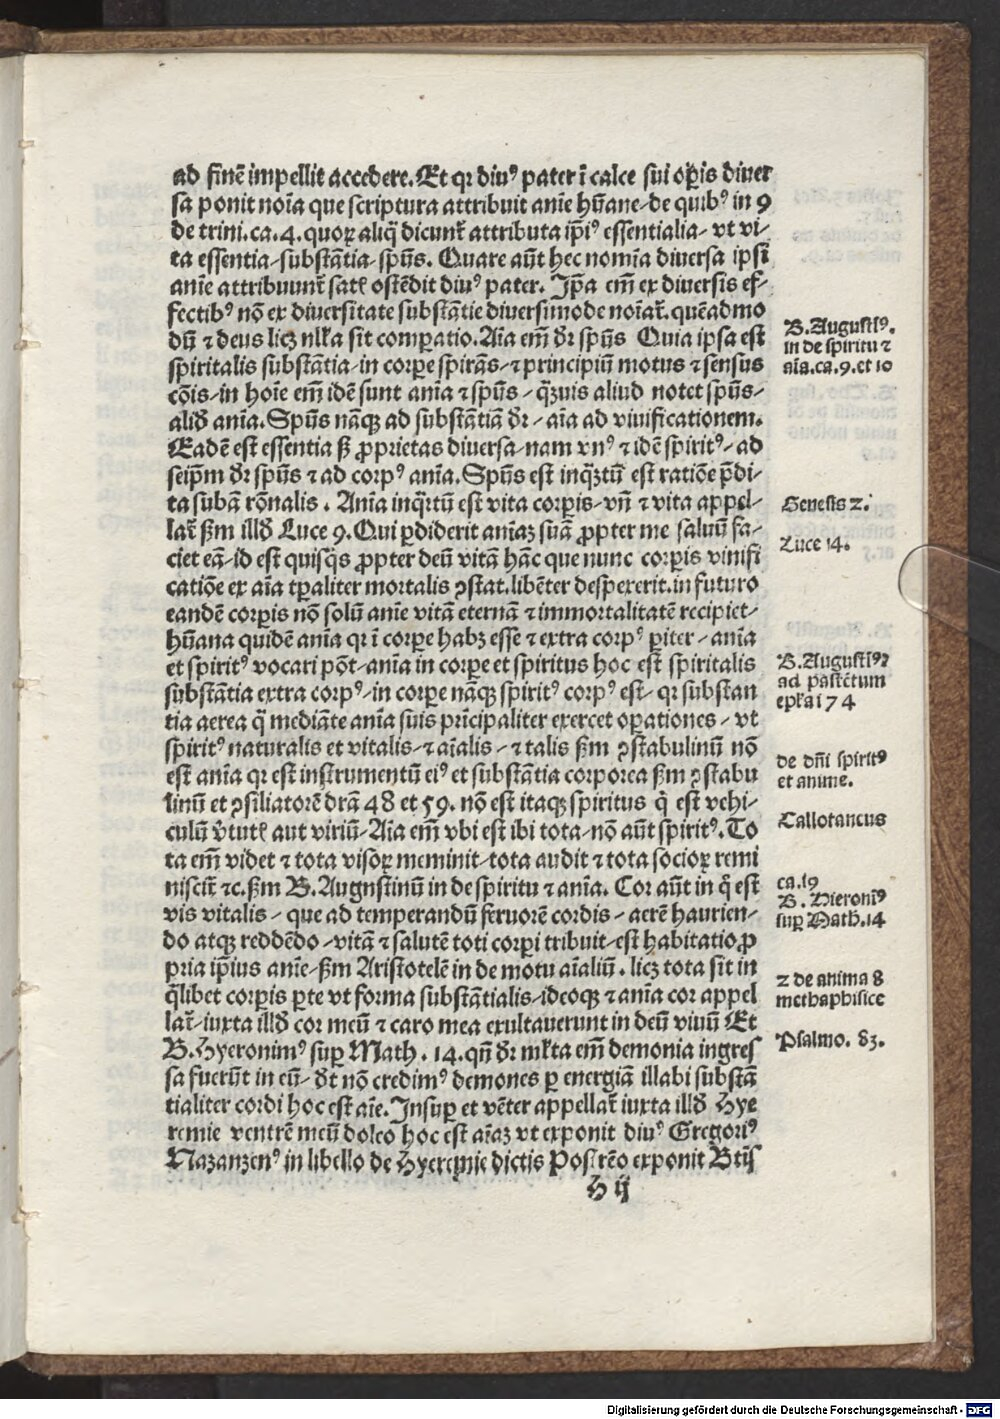 ad finē impellit accedere. Et qꝛ diuꝰ pater ī calce sui oꝑis diuer
sa ponit noīa que scriptura attribuit anīe hūane/ de quibꝰ in 9
de trini. ca. 4. quoꝝ aliq̄ dicunt̄ attributa ip̄iꝰ essentialia/ vt vi/
ta essentia/ substātia/ sp̄us. Quare aūt hec nomīa diuersa ipsi
anīe attribuunt̄ satꝭ ostēdit diuꝰ pater. Ip̄a em̄ ex diuersis ef/
fectibꝰ nō ex diuersitate substātie diuersimode noīat̄. quēadmo
dū ⁊ deus licꝫ nlꝉa sit comꝑatio. Aīa em̄ dꝛ sp̄us Quia ipsa est
spiritalis substātia/ in corꝑe spirās/ ⁊ principiū motus ⁊ sensus
cōis/ in hoīe em̄ idē sunt anīa ⁊ sp̄us/ q̄ꝫuis aliud notet sp̄us/
aliđ anīa. Sp̄us nāqꝫ ad substātiā dꝛ/ aīa ad viuificationem.
Eadē est essentia sꝫ ꝓprietas diuersa/ nam vnꝰ ⁊ idē spiritꝰ/ ad
seip̄m dꝛ sp̄us ⁊ ad corpꝰ anīa. Sp̄us est inq̄ꝫtū est ratiōe p̄di/
ta subā rōnalis. Anīa inq̄ꝫtū est vita corꝑis/ vn̄ ⁊ vita appel/
lat̄ ẜm illđ Luce 9. Qui ꝑdiderit anīaꝫ suā ꝓpter me saluū fa/
ciet eā/ id est quisq̄s ꝓpter deū vitā hāc que nunc corꝑis viuifi
catiōe ex aīa tꝑaliter mortalis ꝯstat. libēter despexerit. in futuro
eandē corꝑis nō solū anīe vitā eternā ⁊ immortalitatē recipiet/
hūana quidē anīa qꝛ ī corꝑe habꝫ esse ⁊ extra corpꝰ ꝑiter/ anīa
et spiritꝰ vocari pōt/ anīa in corꝑe et spiritus hoc est spiritalis
substātia extra corpꝰ/ in corꝑe nāqꝫ spiritꝰ corpꝰ est/ qꝛ substan
tia aerea q̄ mediāte anīa suis prīcipaliter exercet oꝑationes/ vt
spiritꝰ naturalis et vitalis/ ⁊ aīalis/ ⁊ talis ẜm ꝯstabulinū nō
est anīa qꝛ est instrumentū eiꝰ et substātia corporea ẜm ꝯstabu
linū et ꝯsiliatorē drā 48 et 59. nō est itaqꝫ spiritus q̄ est vehi/
culū v̄tutꝭ aut viriū/ Aīa em̄ vbi est ibi tota/ nō aūt spiritꝰ. To
ta em̄ videt ⁊ tota visoꝝ meminit/ tota audit ⁊ tota socioꝝ remi
niscit̄ ⁊c. ẜm B. Augnstinū in de spiritu ⁊ anīa. Cor aūt in q̄ est
vis vitalis/ que ad temperandū feruorē cordis/ aerē haurien/
do atqꝫ reddēdo/ vitā ⁊ salutē toti corꝑi tribuit/ est habitatio ꝓ
pria ip̄ius anīe/ ẜm Aristotelē in de motu aīaliū. licꝫ tota sit in
q̄libet corꝑis ꝑte vt forma substātialis/ ideoqꝫ ⁊ anīa cor appel
lat̄/ iuxta illđ cor meū ⁊ caro mea exultauerunt in deū viuū Et
B. Hyeronimꝰ suꝑ Math. 14. qn̄ dꝛ mꝉta em̄ demonia ingres
sa fuerūt in eū/ đt nō credimꝰ demones ꝑ energiā illabi substā
tialiter cordi hoc est aīe. Insuꝑ et vēter appellat̄ iuxta illđ Hye
remie ventrē meū doleo hoc est aīaꝫ vt exponit diuꝰ Gregoriꝰ
Nazanzenꝰ in libello de Hyeremie dictis Postrēo exponit
H ij
B. Augustīꝰ.
in de spiritu ⁊
aīa. ca. 9. et 10
Genesis 2.
Luce 14.
B. Augustīꝰ
ad pastētum
epꝉa 174
de dn̄i spiritꝰ
et anime.
Callotancus
ca. 19
B. Hieronīꝰ
suꝑ Math. 14
2 de anima 8
methaphisice
Psalmo. 83.
Digitalisierung gefördert durch die Deutsche Forschungsgemeinschaft - DFG